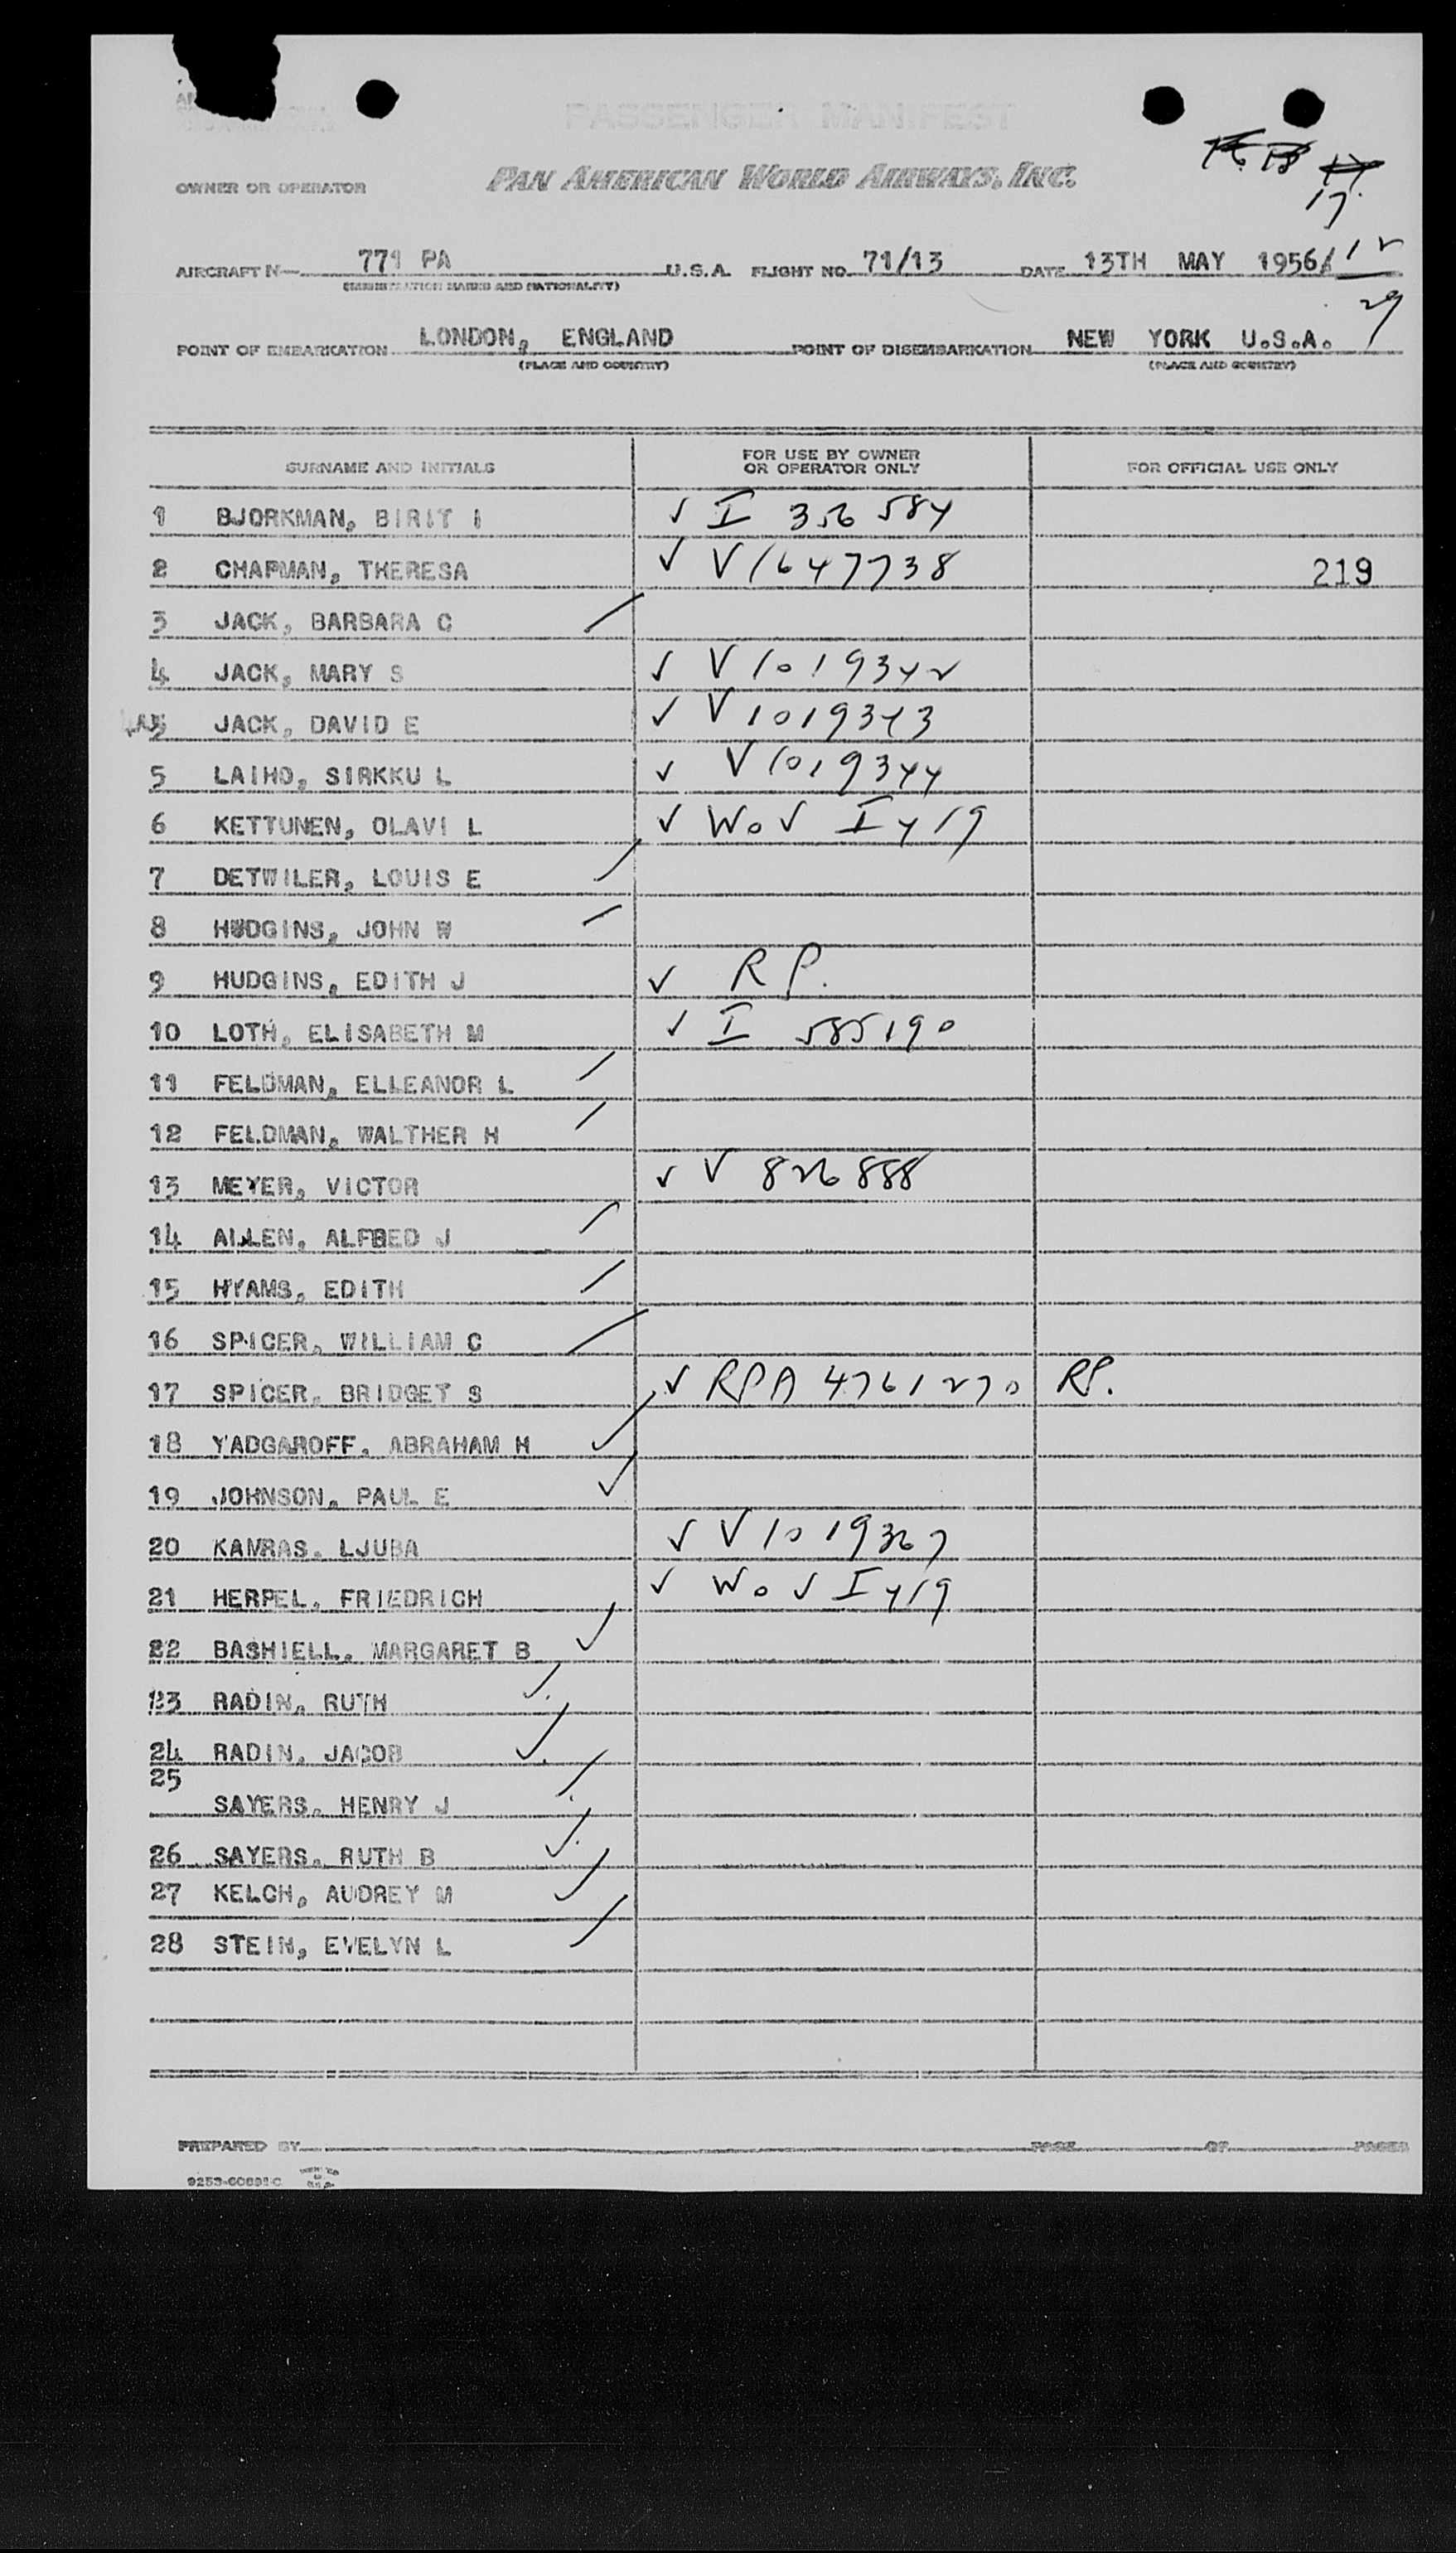 PASSENGER MANIFEST
OWNER OR OPERATOR PAN AMERICAN WORLD AIRWAYS, INC.
17
AIRCRAFT N— 771 PA U.S.A. FLIGHT NO. 71/13 DATE 13TH MAY 1956 / 12
29
POINT OF EMBARKATION LONDON, ENGLAND POINT OF DISEMBARKATION NEW YORK U.S.A.
(PLACE AND COUNTRY) (PLACE AND COUNTRY)
SURNAME AND INITIALS FOR USE BY OWNER OR OPERATOR ONLY FOR OFFICIAL USE ONLY
1 BJORKMAN, BIRIT I ✓ I 356 584
2 CHAPMAN, THERESA ✓ V1647738 219
3 JACK, BARBARA C
4 JACK, MARY S ✓ V1019342
JACK, DAVID E ✓ V1019343
5 LAIHO, SIRKKU L ✓ V1019344
6 KETTUNEN, OLAVI L ✓ WoV I419
7 DETWILER, LOUIS E
8 HUDGINS, JOHN W
9 HUDGINS, EDITH J ✓ RP.
10 LOTH, ELISABETH M ✓ I 585190
11 FELDMAN, ELLEANOR L
12 FELDMAN, WALTHER H
13 MEYER, VICTOR ✓ V 826888
14 ALLEN, ALFRED J
15 HYAMS, EDITH
16 SPICER, WILLIAM C
17 SPICER, BRIDGET S ✓ RPA 4761270 RP.
18 YADGAROFF, ABRAHAM H ✓
19 JOHNSON, PAUL E ✓
20 KAMRAS, LJUBA ✓ V1019367
21 HERPEL, FRIEDRICH ✓ WoV I419
22 BASHIELL, MARGARET B ✓
23 RADIN, RUTH ✓
24 RADIN, JACOB ✓
25
SAYERS, HENRY J
26 SAYERS, RUTH B ✓
27 KELCH, AUDREY M ✓
28 STEIN, EVELYN L
PREPARED BY PAGE OF PAGES